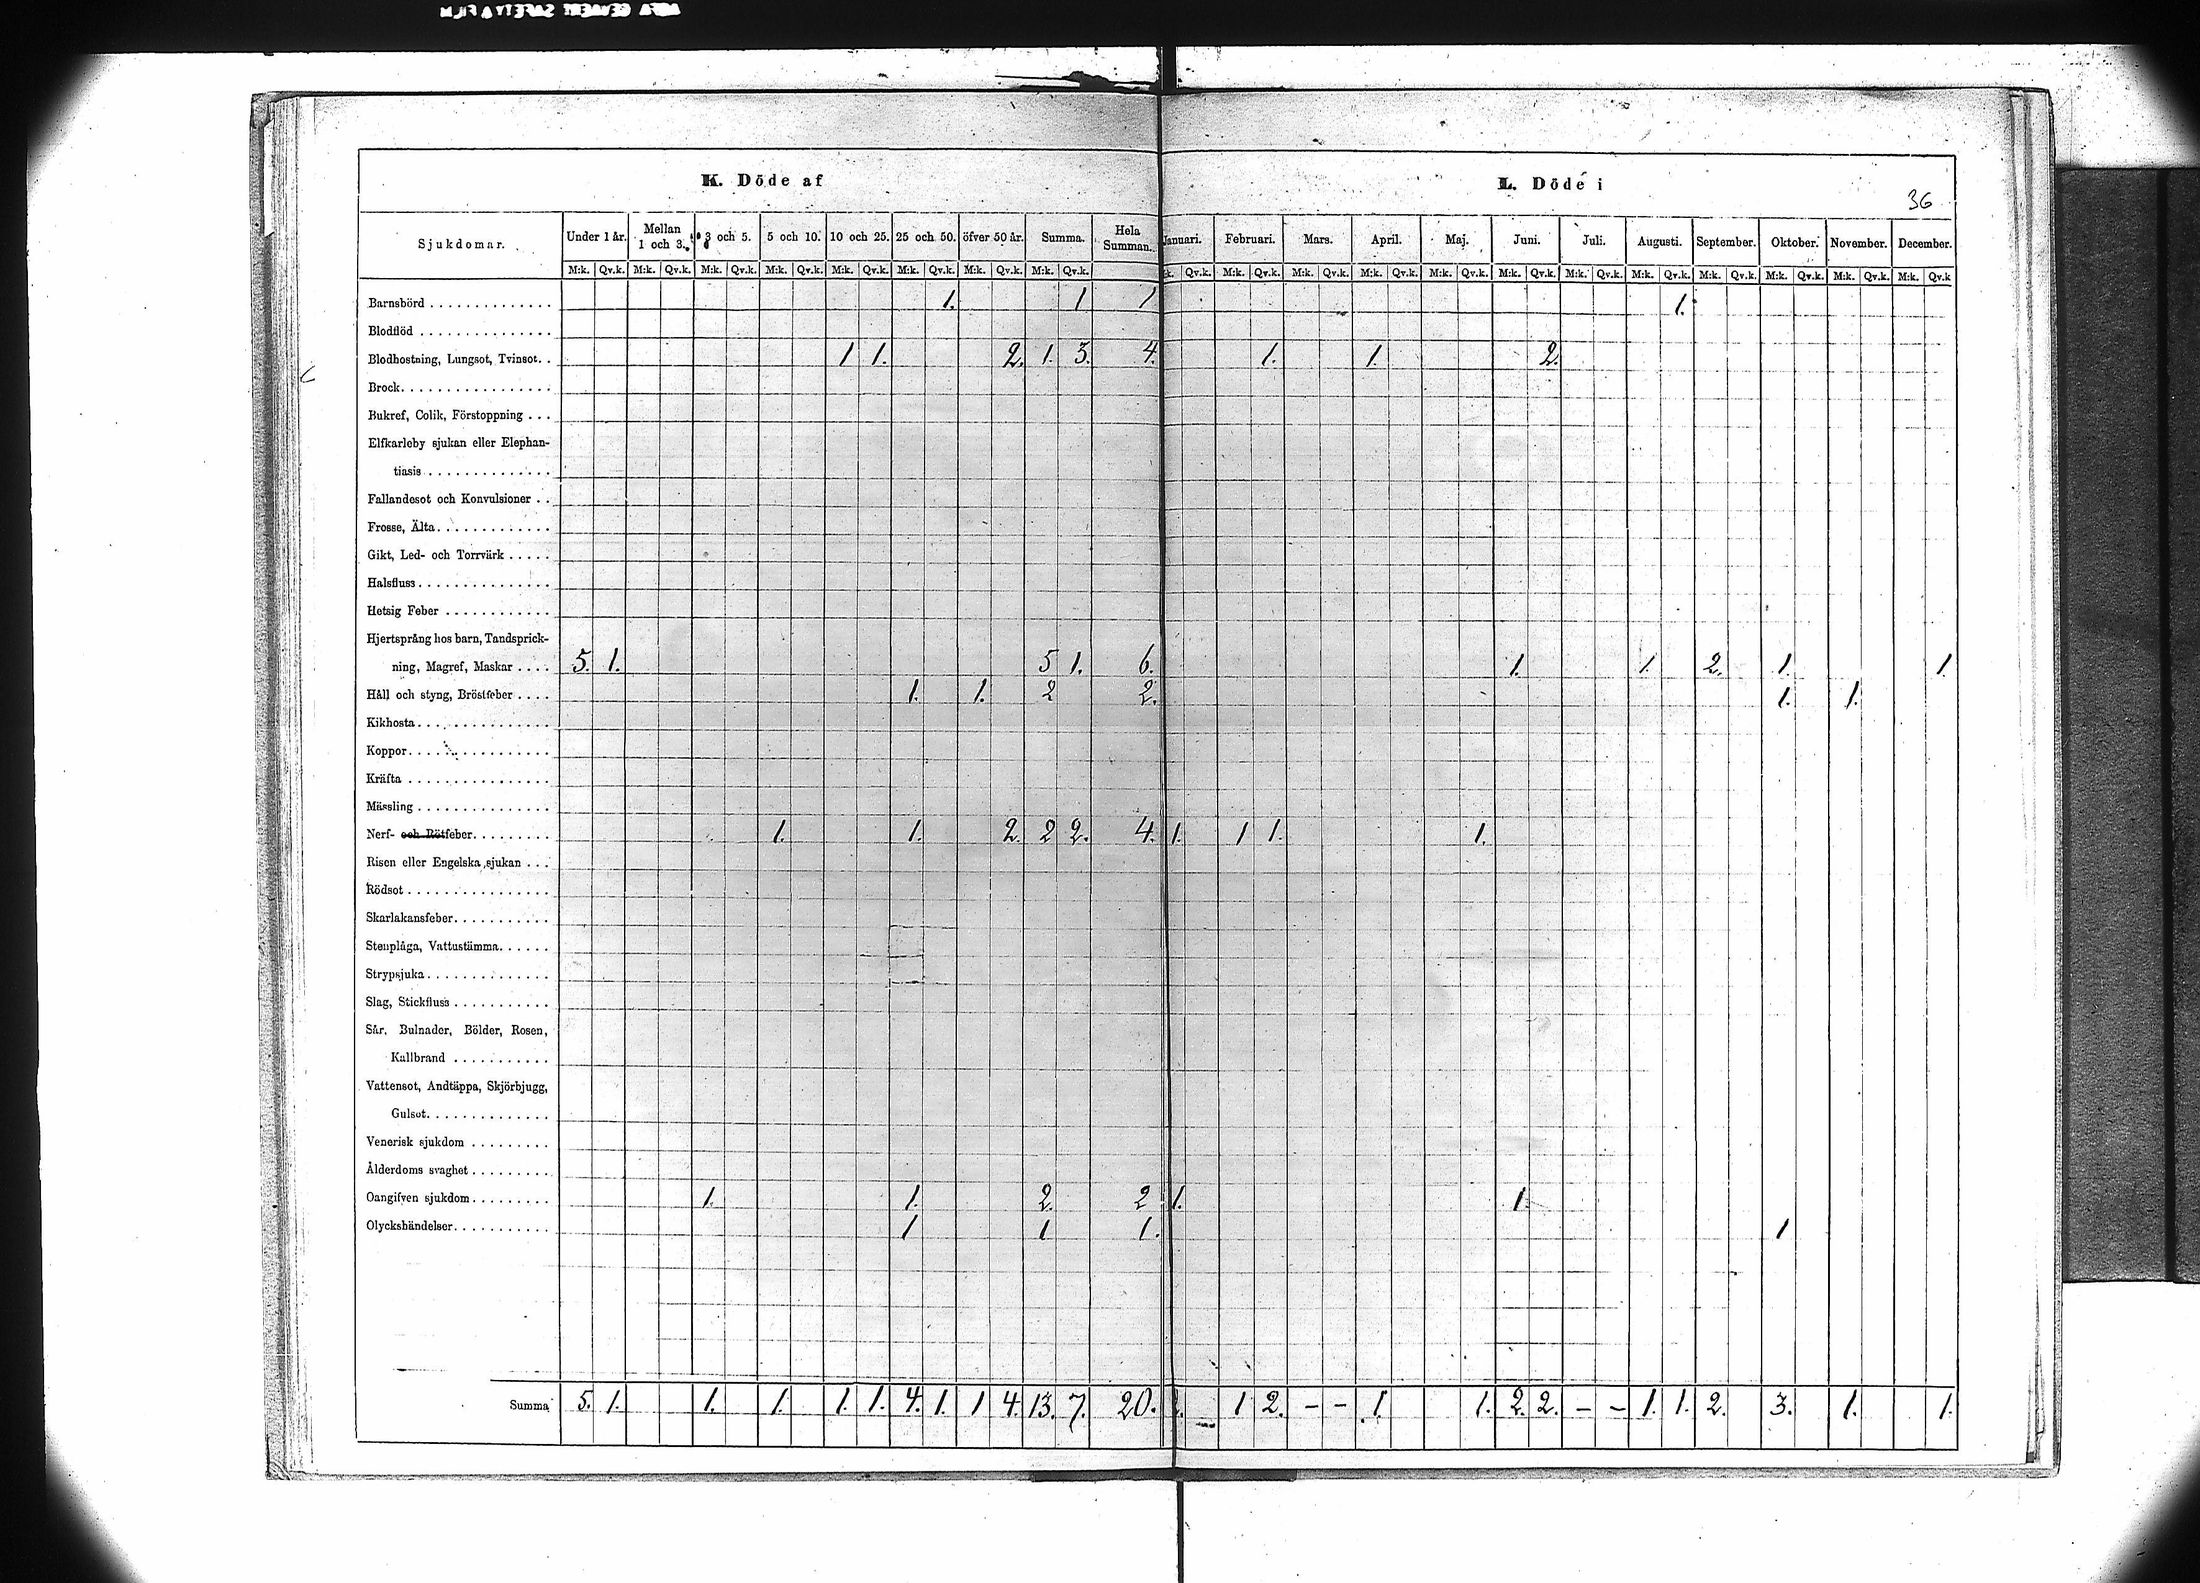 K. Döde af
L. Döde i
36
Sjukdomar. Under 1 år. Mellan 1 och 3. 3 och 5. 5 och 10. 10 och 25. 25 och 50. öfver 50 år. Summa. Hela Summan. Januari. Februari. Mars. April. Maj. Juni. Juli. Augusti. September. Oktober. November. December.
M:k. Qv.k. M:k. Qv.k. M:k. Qv.k. M:k. Qv.k. M:k. Qv.k. M:k. Qv.k. M:k. Qv.k. M:k. Qv.k. k. Qv.k. M:k. Qv.k. M:k. Qv.k. M:k. Qv.k. M:k. Qv.k. M:k. Qv.k. M:k. Qv.k. M:k. Qv.k. M:k. Qv.k. M:k. Qv.k. M:k. Qv.k. M:k. Qv.k
Barnsbörd . . . . . . . . . . . . . . 1. 1 1 1.
Blodflöd . . . . . . . . . . . . . . .
Blodhostning, Lungsot, Tvinsot. . 1 1. 2. 1. 3. 4. 1. 1. 2.
Brock. . . . . . . . . . . . . . . . .
Bukref, Colik, Förstoppning . . .
Elfkarleby sjukan eller Elephan-
tiasis . . . . . . . . . . . . . .
Fallandesot och Konvulsioner . .
Frosse, Älta. . . . . . . . . . . . .
Gikt, Led- och Torrvärk . . . . .
Halsfluss . . . . . . . . . . . . . . .
Hetsig Feber . . . . . . . . . . . .
Hjertsprång hos barn, Tandsprick-
ning, Magref, Maskar . . . . 5. 1. 5 1. 6. 1. 1. 2. 1. 1.
Håll och styng, Bröstfeber . . . . 1. 1. 2 2. 1. 1.
Kikhosta . . . . . . . . . . . . . . .
Koppor. . . . . . . . . . . . . . . .
Kräfta . . . . . . . . . . . . . . . .
Mässling . . . . . . . . . . . . . . .
Nerf- och Rötfeber. . . . . . . . . 1. 1. 2. 2 2. 4. 1. 1 1. 1.
Risen eller Engelska sjukan . . .
Rödsot . . . . . . . . . . . . . . . .
Skarlakansfeber. . . . . . . . . . .
Stenplåga, Vattustämma. . . . . .
Strypsjuka . . . . . . . . . . . . . .
Slag, Stickfluss . . . . . . . . . . .
Sår, Bulnader, Bölder, Rosen,
Kallbrand . . . . . . . . . . .
Vattensot, Andtäppa, Skjörbjugg,
Gulsot. . . . . . . . . . . . . .
Venerisk sjukdom . . . . . . . . .
Ålderdoms svaghet . . . . . . . . .
Oangifven sjukdom . . . . . . . . . 1. 1. 2. 2 1. 1.
Olyckshändelser. . . . . . . . . . . 1 1 1. 1
Summa 5. 1. 1. 1. 1. 1. 4. 1. 1 4. 13. 7. 20. – 1 2. – – 1. 1. 2. 2. – – 1. 1. 2. 3. 1. 1.